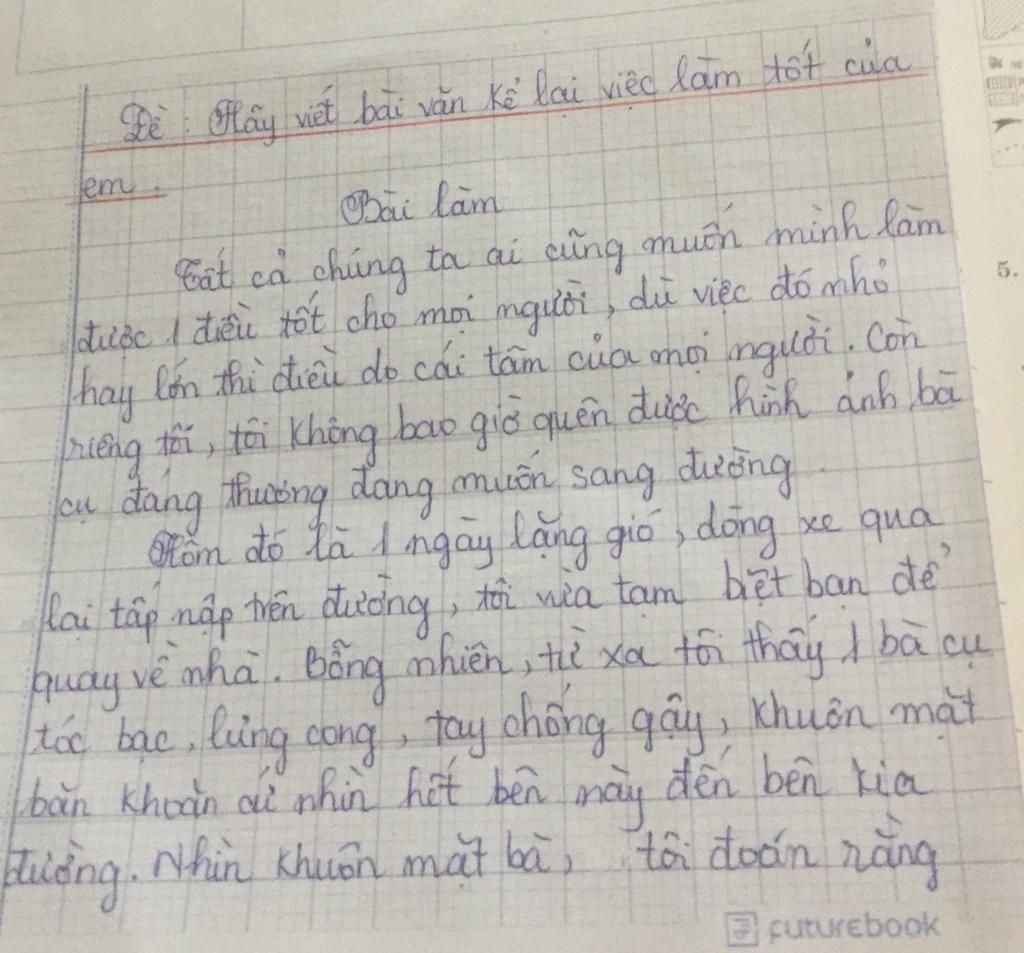 Đề: Hãy viết bài văn kể lại việc làm tốt của
em.
Bài làm
Tất cả chúng ta ai cũng muốn mình làm
được 1 điều tốt cho mọi người, dù việc đó nhỏ
hay lớn thì điều do cái tâm của mọi người. Còn
riêng tôi, tôi không bao giờ quên được hình ảnh bà
cụ đáng thương đang muốn sang đường.
Hôm đó là 1 ngày lặng gió, dòng xe qua
lại tấp nập trên đường, tôi vừa tạm biệt bạn để
quay về nhà. Bỗng nhiên, từ xa tôi thấy 1 bà cụ
tóc bạc, lưng cong, tay chống gậy, khuôn mặt
băn khoăn cứ nhìn hết bên này đến bên kia
đường. Nhìn khuôn mặt bà, tôi đoán rằng
FUTUREBOOK
5.